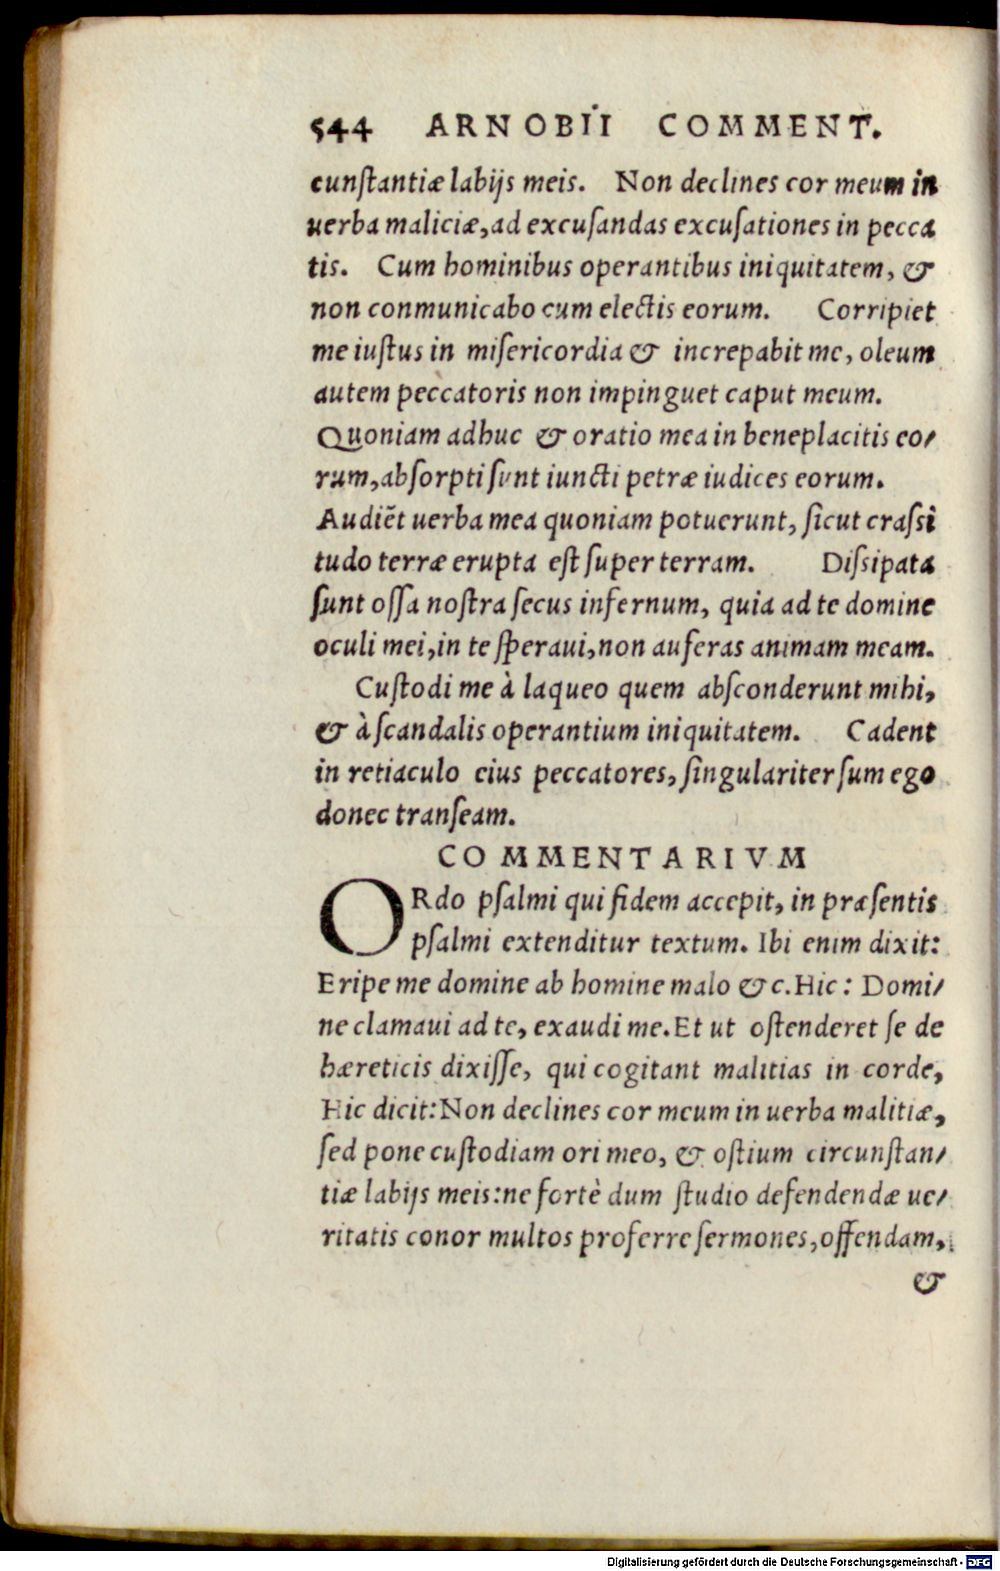 544 ARNOBII COMMENT.
cunſtantiæ labijs meis. Non declines cor meum in
uerba maliciæ, ad excuſandas excuſationes in pecca
tis. Cum hominibus operantibus iniquitatem, &
non conmunicabo cum electis eorum. Corripiet
me iuſtus in miſericordia & increpabit me, oleum
autem peccatoris non impinguet caput meum.
Quoniam adhuc & oratio mea in beneplacitis eo/
rum, abſorpti ſunt iuncti petræ iudices eorum.
Audiēt uerba mea quoniam potuerunt, ſicut craſsi
tudo terræ erupta eſt ſuper terram. Diſsipata
ſunt oſſa noſtra ſecus infernum, quia ad te domine
oculi mei, in te ſperaui, non auferas animam meam.
Cuſtodi me à laqueo quem abſconderunt mihi,
& à ſcandalis operantium iniquitatem. Cadent
in retiaculo eius peccatores, ſingulariter ſum ego
donec tranſeam.
COMMENTARIVM
ORdo pſalmi qui fidem accepit, in præſentis
pſalmi extenditur textum. Ibi enim dixit:
Eripe me domine ab homine malo &c. Hic: Domi/
ne clamaui ad te, exaudi me. Et ut oſtenderet ſe de
hæreticis dixiſſe, qui cogitant malitias in corde,
Hic dicit: Non declines cor meum in uerba malitiæ,
ſed pone cuſtodiam ori meo, & oſtium circunſtan/
tiæ labijs meis: ne fortè dum ſtudio defendendæ ue/
ritatis conor multos proferre ſermones, offendam,
&
Digitalisierung gefördert durch die Deutsche Forschungsgemeinschaft - DFG